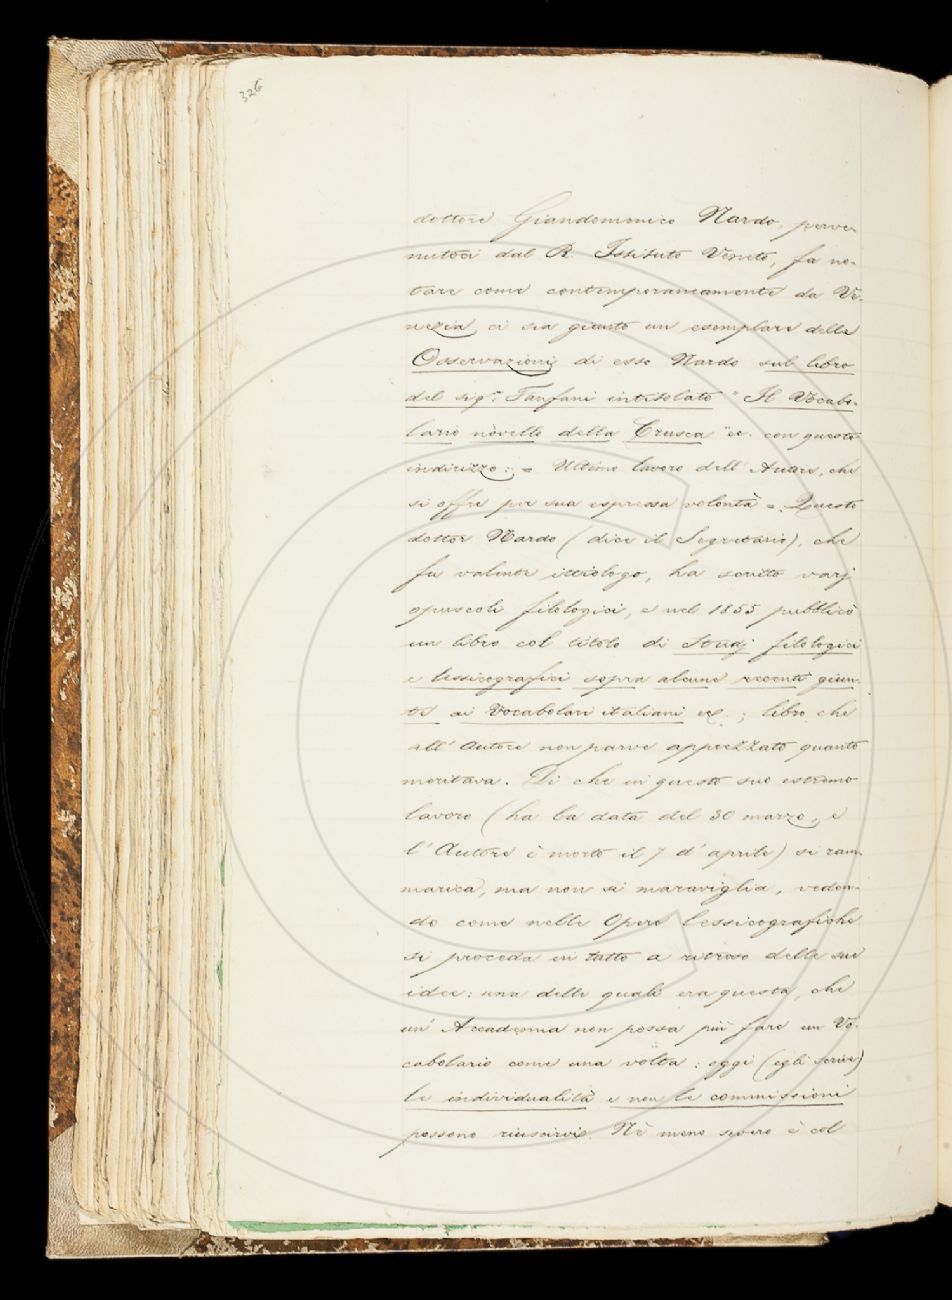 326
dottore Giandomenico Nardo, perve-
nutoci dal R. Istituto Veneto, fa no-
tare come contemporaneamente da Ve-
nezia ci sia giunto un esemplare delle
Osservazioni di esso Nardo sul libro
del sigr. Fanfani intitolato "Il Vocabo-
lario novello della Crusca" ec. con questo
indirizzo: = Ultimo lavoro dell'Autore, che
si offre per sua espressa volontà =. Questo
dottor Nardo (dice il Segretario), che
fu valente ittiologo, ha scritto varj
opuscoli filologici, e nel 1855 pubblicò
un libro col titolo di Studj filologici
e lessicografici sopra alcune recenti giun-
te ai Vocabolari italiani ec.; libro che
all'Autore non parve apprezzato quanto
meritava. Di che in questo suo estremo
lavoro (ha la data del 30 marzo, e
l'Autore è morto il 7 d'aprile) si ram-
marica, ma non si maraviglia, veden-
do come nelle Opere lessicografiche
si proceda in tutto a ritroso delle sue
idee: una delle quali era questa, che
un'Accademia non possa più fare un Vo-
cabolario come una volta: oggi (egli scrive)
le individualità e non le commissioni
possono riuscirvi. Nè meno severo è col